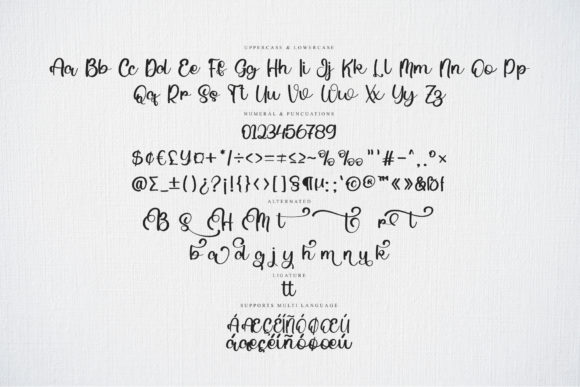 UPPERCASE & LOWERCASE
Aa Bb Cc Dd Ee Ff Gg Hh Ii Jj Kk Ll Mm Nn Oo Pp
Qq Rr Ss Tt Uu Vv Ww Xx Yy Zz
NUMERAL & PUNCUATIONS
0123456789
$¢€£¥¤+*/÷<>=±≤≥~%‰"'#-^,.°×
@Σ_±()¿?¡!{}<>[]§¶µ:;'©®™«»&
ALTERNATED
B S H M t t r t
b a d g j y h m n y k
LIGATURE
tt
SUPPORTS MULTI LANGUAGE
ÁÆÇÉÍÑÓØŒÚ
áæçéíñóøœú